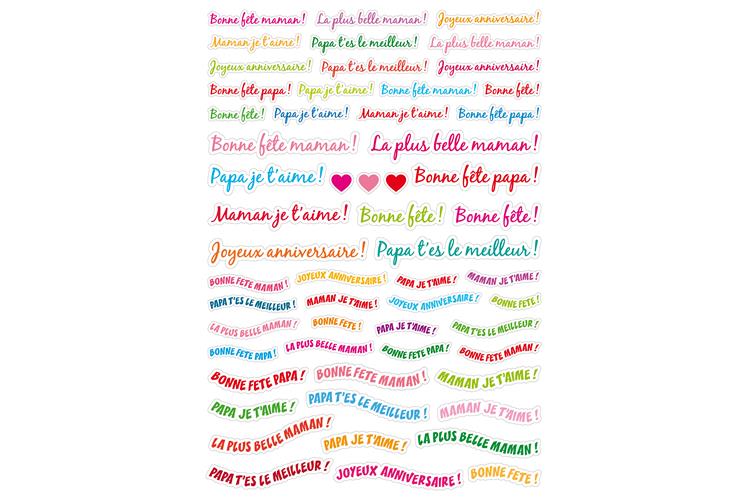 Bonne fête maman ! La plus belle maman ! Joyeux anniversaire !
Maman je t'aime ! Papa t'es le meilleur ! La plus belle maman !
Joyeux anniversaire ! Papa t'es le meilleur ! Joyeux anniversaire !
Bonne fête papa ! Papa je t'aime ! Bonne fête maman ! Bonne fête !
Bonne fête ! Papa je t'aime ! Maman je t'aime ! Bonne fête papa !
Bonne fête maman ! La plus belle maman !
Papa je t'aime ! Bonne fête papa !
Maman je t'aime ! Bonne fête ! Bonne fête !
Joyeux anniversaire ! Papa t'es le meilleur !
BONNE FETE MAMAN ! JOYEUX ANNIVERSAIRE ! PAPA JE T'AIME ! MAMAN JE T'AIME !
PAPA T'ES LE MEILLEUR ! MAMAN JE T'AIME ! JOYEUX ANNIVERSAIRE ! BONNE FETE !
LA PLUS BELLE MAMAN ! BONNE FETE ! PAPA JE T'AIME ! PAPA T'ES LE MEILLEUR !
BONNE FETE PAPA ! LA PLUS BELLE MAMAN ! BONNE FETE PAPA ! BONNE FETE MAMAN !
BONNE FETE PAPA ! BONNE FETE MAMAN ! MAMAN JE T'AIME !
PAPA JE T'AIME ! PAPA T'ES LE MEILLEUR ! MAMAN JE T'AIME !
LA PLUS BELLE MAMAN ! PAPA JE T'AIME ! LA PLUS BELLE MAMAN !
PAPA T'ES LE MEILLEUR ! JOYEUX ANNIVERSAIRE ! BONNE FETE !